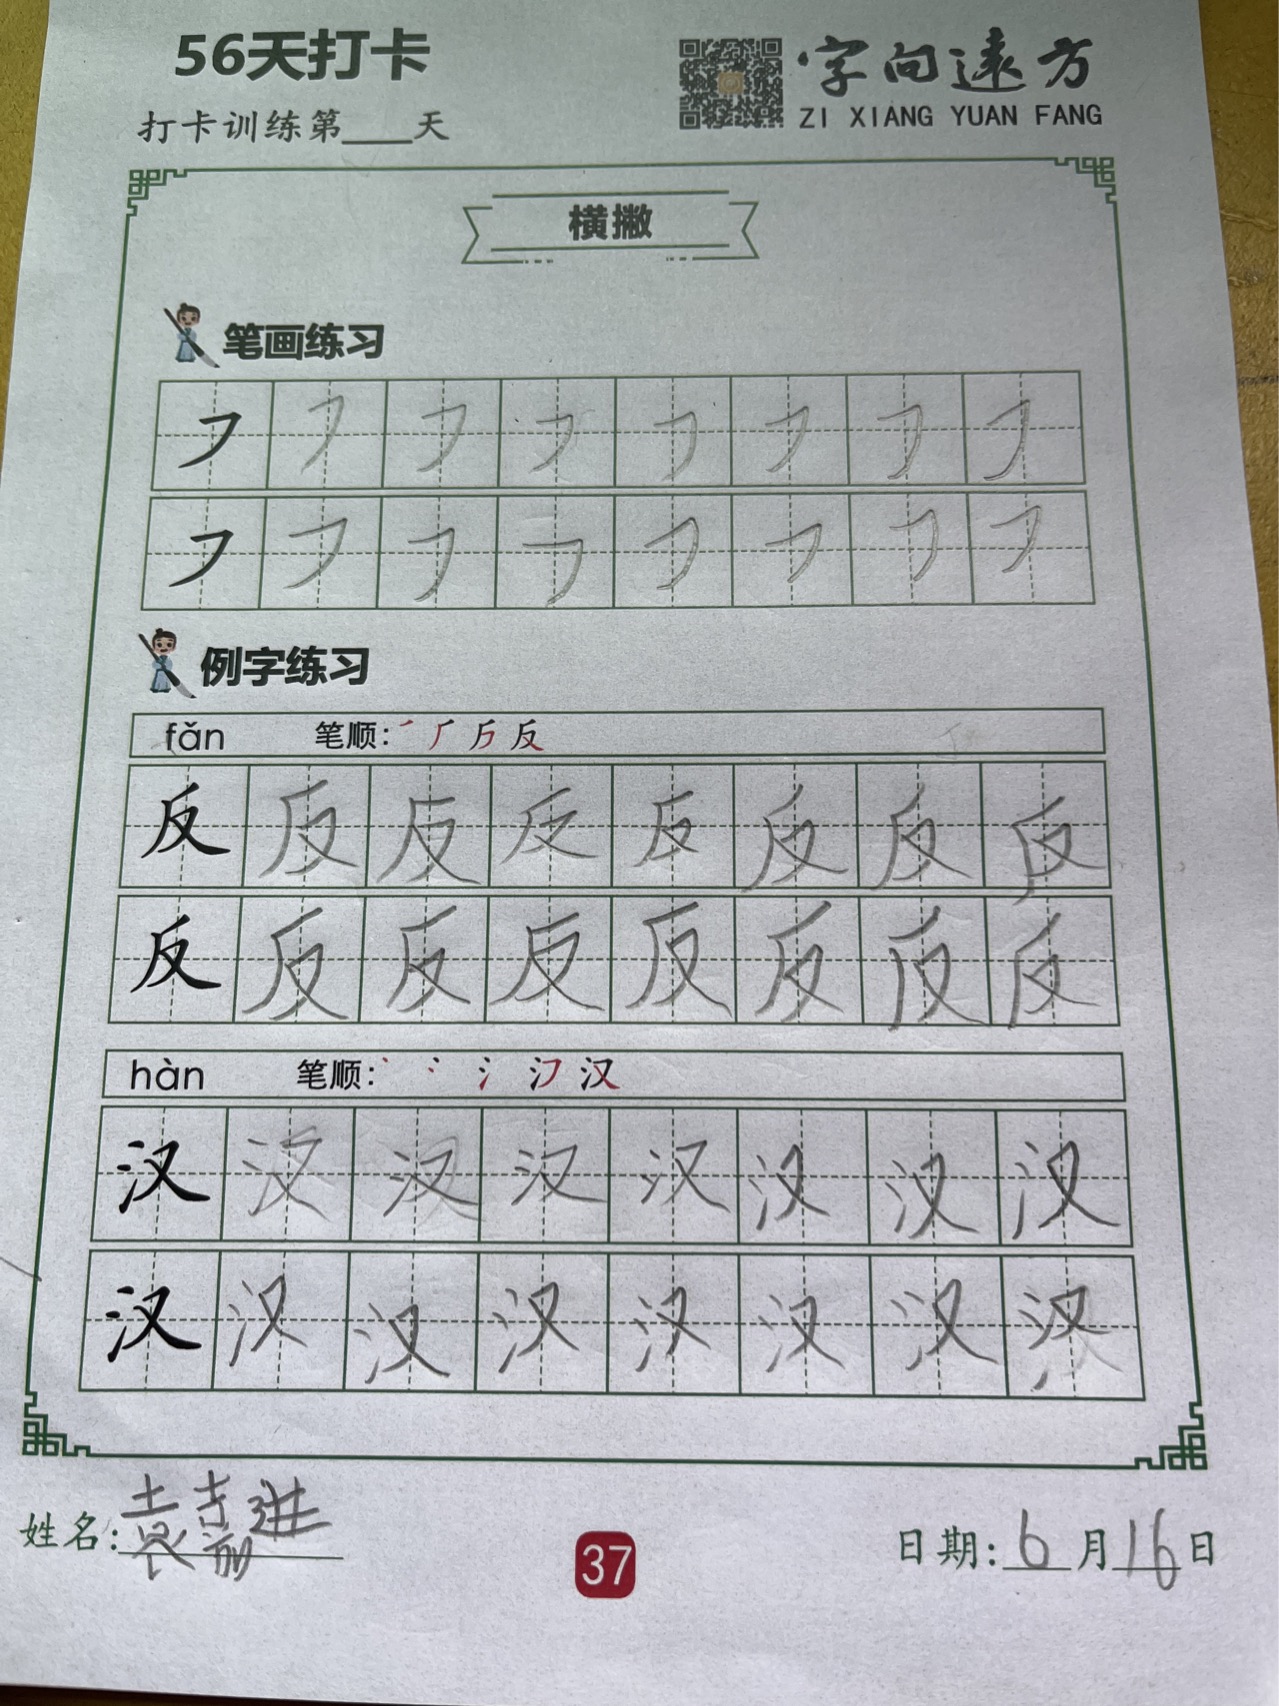 56天打卡
字向遠方
打卡训练第____天
ZI XIANG YUAN FANG
横撇
笔画练习
㇇ ㇇ ㇇ ㇇ ㇇ ㇇ ㇇ ㇇
㇇ ㇇ ㇇ ㇇ ㇇ ㇇ ㇇ ㇇
例字练习
fǎn 笔顺: 反
反 反 反 反 反 反 反 反
反 反 反 反 反 反 反 反
hàn 笔顺: 汉
汉 汉 汉 汉 汉 汉 汉 汉
汉 汉 汉 汉 汉 汉 汉 汉
姓名: 袁嘉进
37
日期: 6月16日